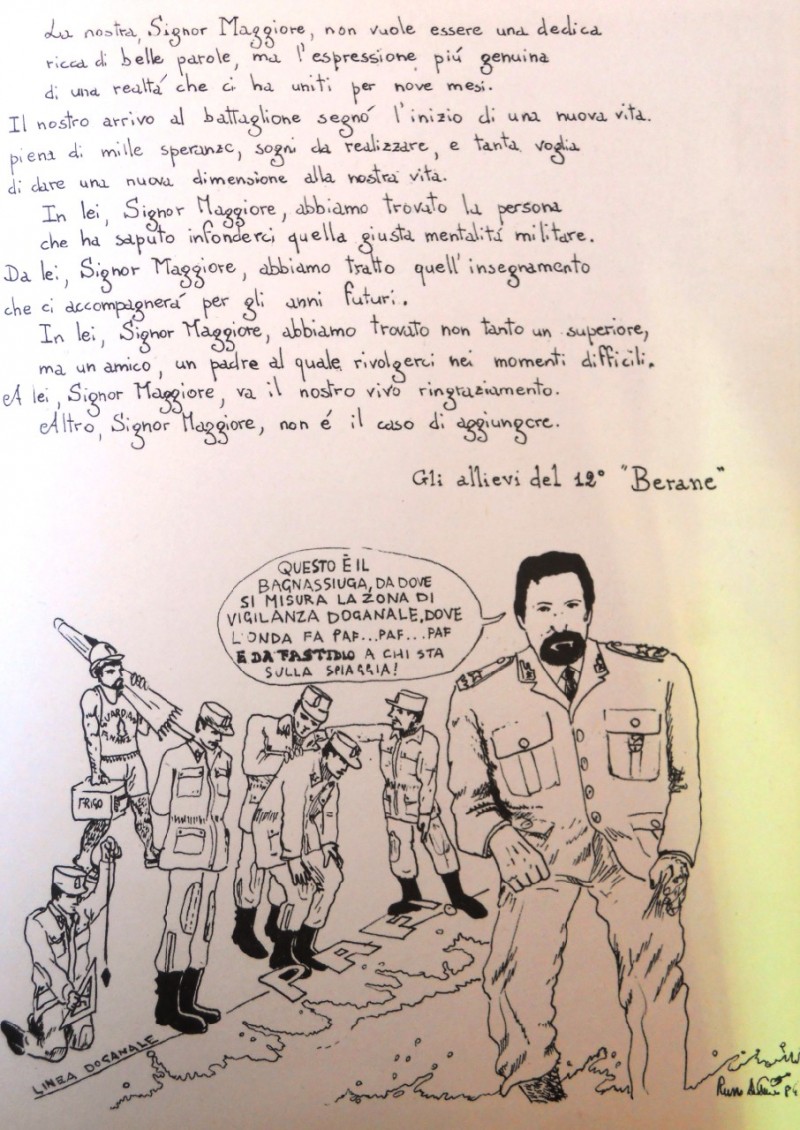 La nostra, Signor Maggiore, non vuole essere una dedica
ricca di belle parole, ma l'espressione piú genuina
di una realtá che ci ha uniti per nove mesi.
Il nostro arrivo al battaglione segnó l'inizio di una nuova vita.
piena di mille speranze, sogni da realizzare, e tanta voglia
di dare una nuova dimensione alla nostra vita.
In lei, Signor Maggiore, abbiamo trovato la persona
che ha saputo infonderci quella giusta mentalitá militare.
Da lei, Signor Maggiore, abbiamo tratto quell'insegnamento
che ci accompagnerá per gli anni futuri.
In lei, Signor Maggiore, abbiamo trovato non tanto un superiore,
ma un amico, un padre al quale rivolgerci nei momenti difficili.
A lei, Signor Maggiore, va il nostro vivo ringraziamento.
Altro, Signor Maggiore, non é il caso di aggiungere.
Gli allievi del 12° "Berane"
QUESTO È IL
BAGNASSIUGA, DA DOVE
SI MISURA LA ZONA DI
VIGILANZA DOGANALE, DOVE
L'ONDA FA PAF...PAF...PAF
E DA FASTIDIO A CHI STA
SULLA SPIAGGIA!
GUARDIA
FRIGO
PAF
LINEA DOGANALE